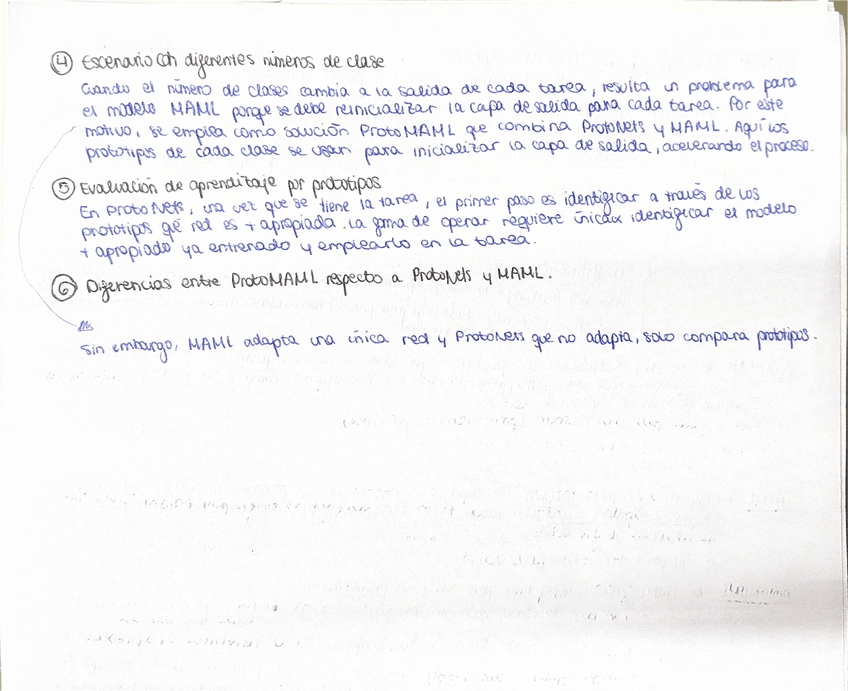 ④ Escenario con diferentes números de clase
Cuando el número de clases cambia a la salida de cada tarea, resulta un problema para
el modelo MAML porque se debe reinicializar la capa de salida para cada tarea. Por este
motivo, se emplea como solución ProtoMAML que combina ProtoNets y MAML. Aquí los
prototipos de cada clase se usan para inicializar la capa de salida, acelerando el proceso.
⑤ Evaluación de aprendizaje por prototipos
En ProtoNets, una vez que se tiene la tarea, el primer paso es identificar a través de los
prototipos qué red es + apropiada. La forma de operar requiere única identificar el modelo
+ apropiado ya entrenado y emplearlo en la tarea.
⑥ Diferencias entre ProtoMAML respecto a ProtoNets y MAML.
Sin embargo, MAML adapta una única red y ProtoNets que no adapta, solo compara prototipos.